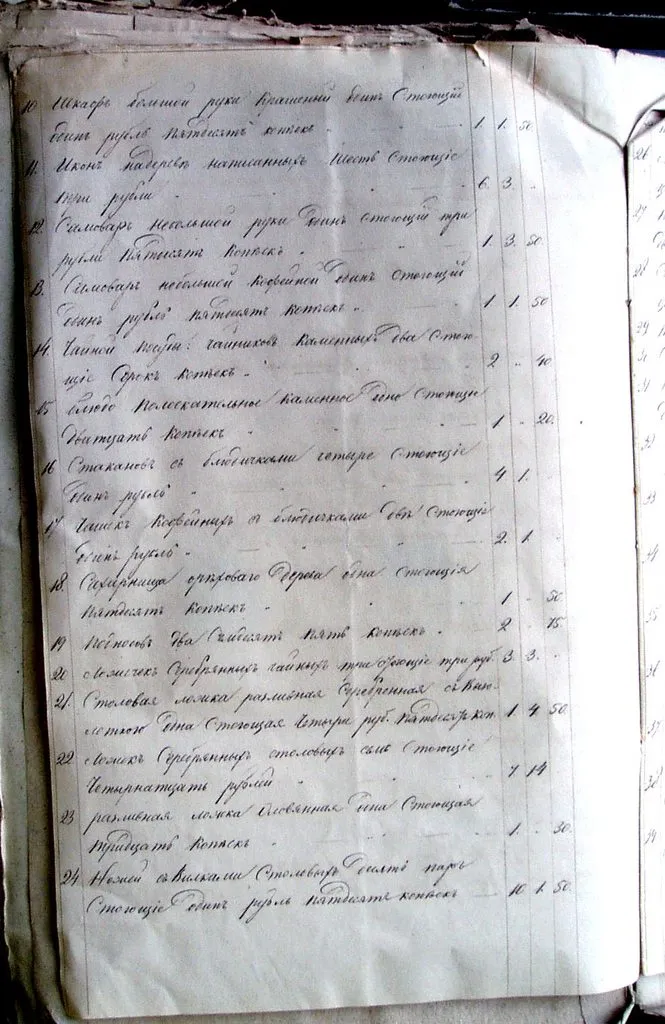 10 Шкафъ большой руки крашеный одинъ стоющій
одинъ рубль пятдесятъ копѣекъ 1. 1. 50.
11. Иконъ надеревѣ написанныхъ шесть стоющіе
три рубли 6. 3.
12. Самоваръ небольшой руки одинъ стоющій три
рубли пятдесятъ копѣекъ 1. 3. 50
13. Самоваръ небольшой кофейной одинъ стоющій
одинъ рубль пятдесятъ копѣекъ 1 1. 50
14. Чайной посуды: чайниковъ каменныхъ два стою-
щіе сорокъ копѣекъ 2 40
15 Блюдо полоскательное каменное одно стоющее
двитцать копѣекъ 1 20.
16 Стакановъ съ блюдичками четыре стоющіе
одинъ рубль 4 1.
17 Чашекъ кофейныхъ съ блюдичками двѣ стоющіе
одинъ рубль 2. 1
18. Сахарница орѣховаго дерева одна стоющія
пятдесятъ копѣекъ 1 50
19 Подносовъ два симдесятъ пять копѣекъ 2 75
20 Ложичекъ серебрянныхъ чайныхъ три стоющіе три руб. 3 3.
21. Столовая ложка разливная серебренная съ
одна стоющая четыри руб. пятдесятъ коп 1 4 50
22 Ложекъ серебрянныхъ столовыхъ семь стоющіе
четырнатцать рублей 7 14
23 разливная ложка оловянная одна стоющая
тридцать копѣекъ 1. 30.
24 Ножей съ вилками столовыхъ десять паръ
стоющіе одинъ рубль пятдесятъ копѣекъ 10 1. 50.
26
27
28
29
30
31
32
33
34
35
36
37
38
39